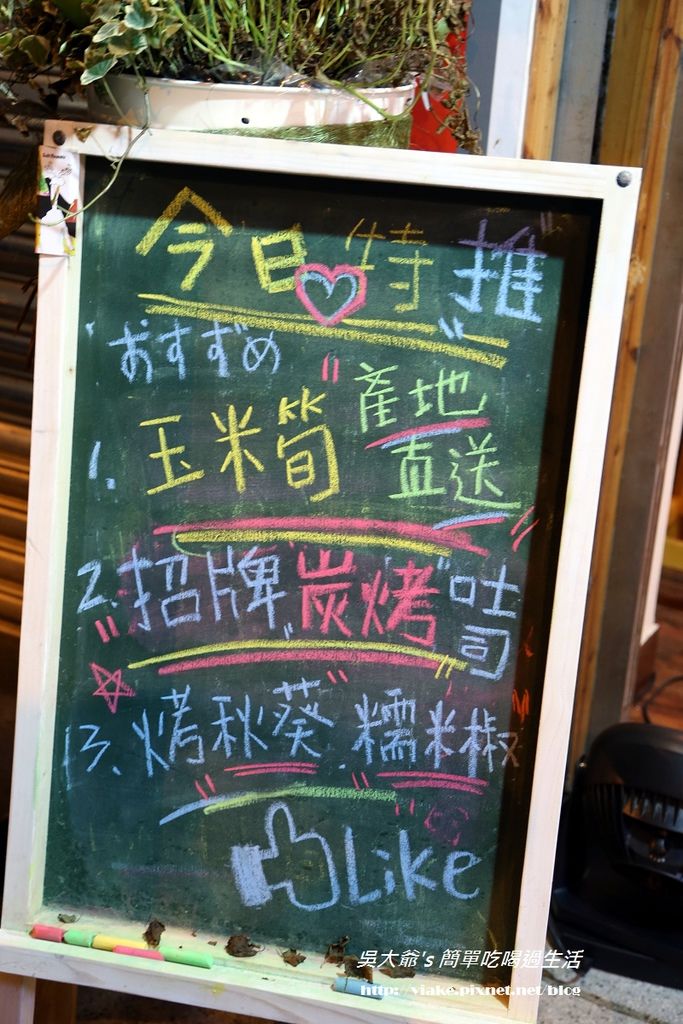 今日特推
おすずめ
1. 玉米筍 產地直送
2. 招牌"炭烤"吐司
3、烤秋葵.糯米椒
Like
吳大爺's 簡單吃喝過生活
http://viake.pixnet.net/blog